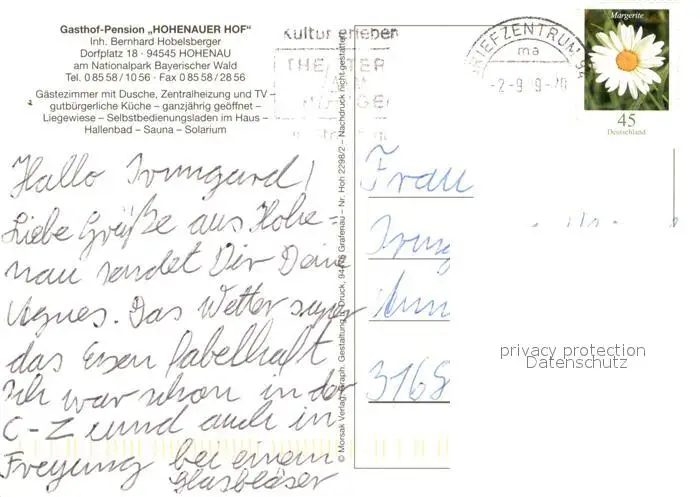 Gasthof-Pension „HOHENAUER HOF"
Inh. Bernhard Hobelsberger
Dorfplatz 18 · 94545 HOHENAU
am Nationalpark Bayerischer Wald
Tel. 0 85 58 / 10 56 · Fax 0 85 58 / 28 56
Gästezimmer mit Dusche, Zentralheizung und TV –
gutbürgerliche Küche – ganzjährig geöffnet –
Liegewiese – Selbstbedienungsladen im Haus –
Hallenbad – Sauna – Solarium
Hallo Irmgard!
Liebe Grüße aus Hohe=
nau sendet Dir Deine
Agnes. Das Wetter super
das Essen fabelhaft
Ich war schon in der
C-Z und auch in
Freyung bei einem
Glasbläser
© Morsak Verlag, Graph. Gestaltung Druck, 94481 Grafenau – Nr. Hoh 2298/2 – Nachdruck nicht gestattet
Kultur erleben
BRIEFZENTRUM 94
ma
Margerite
45
Deutschland
Frau
Irmg
3168
privacy protection
Datenschutz